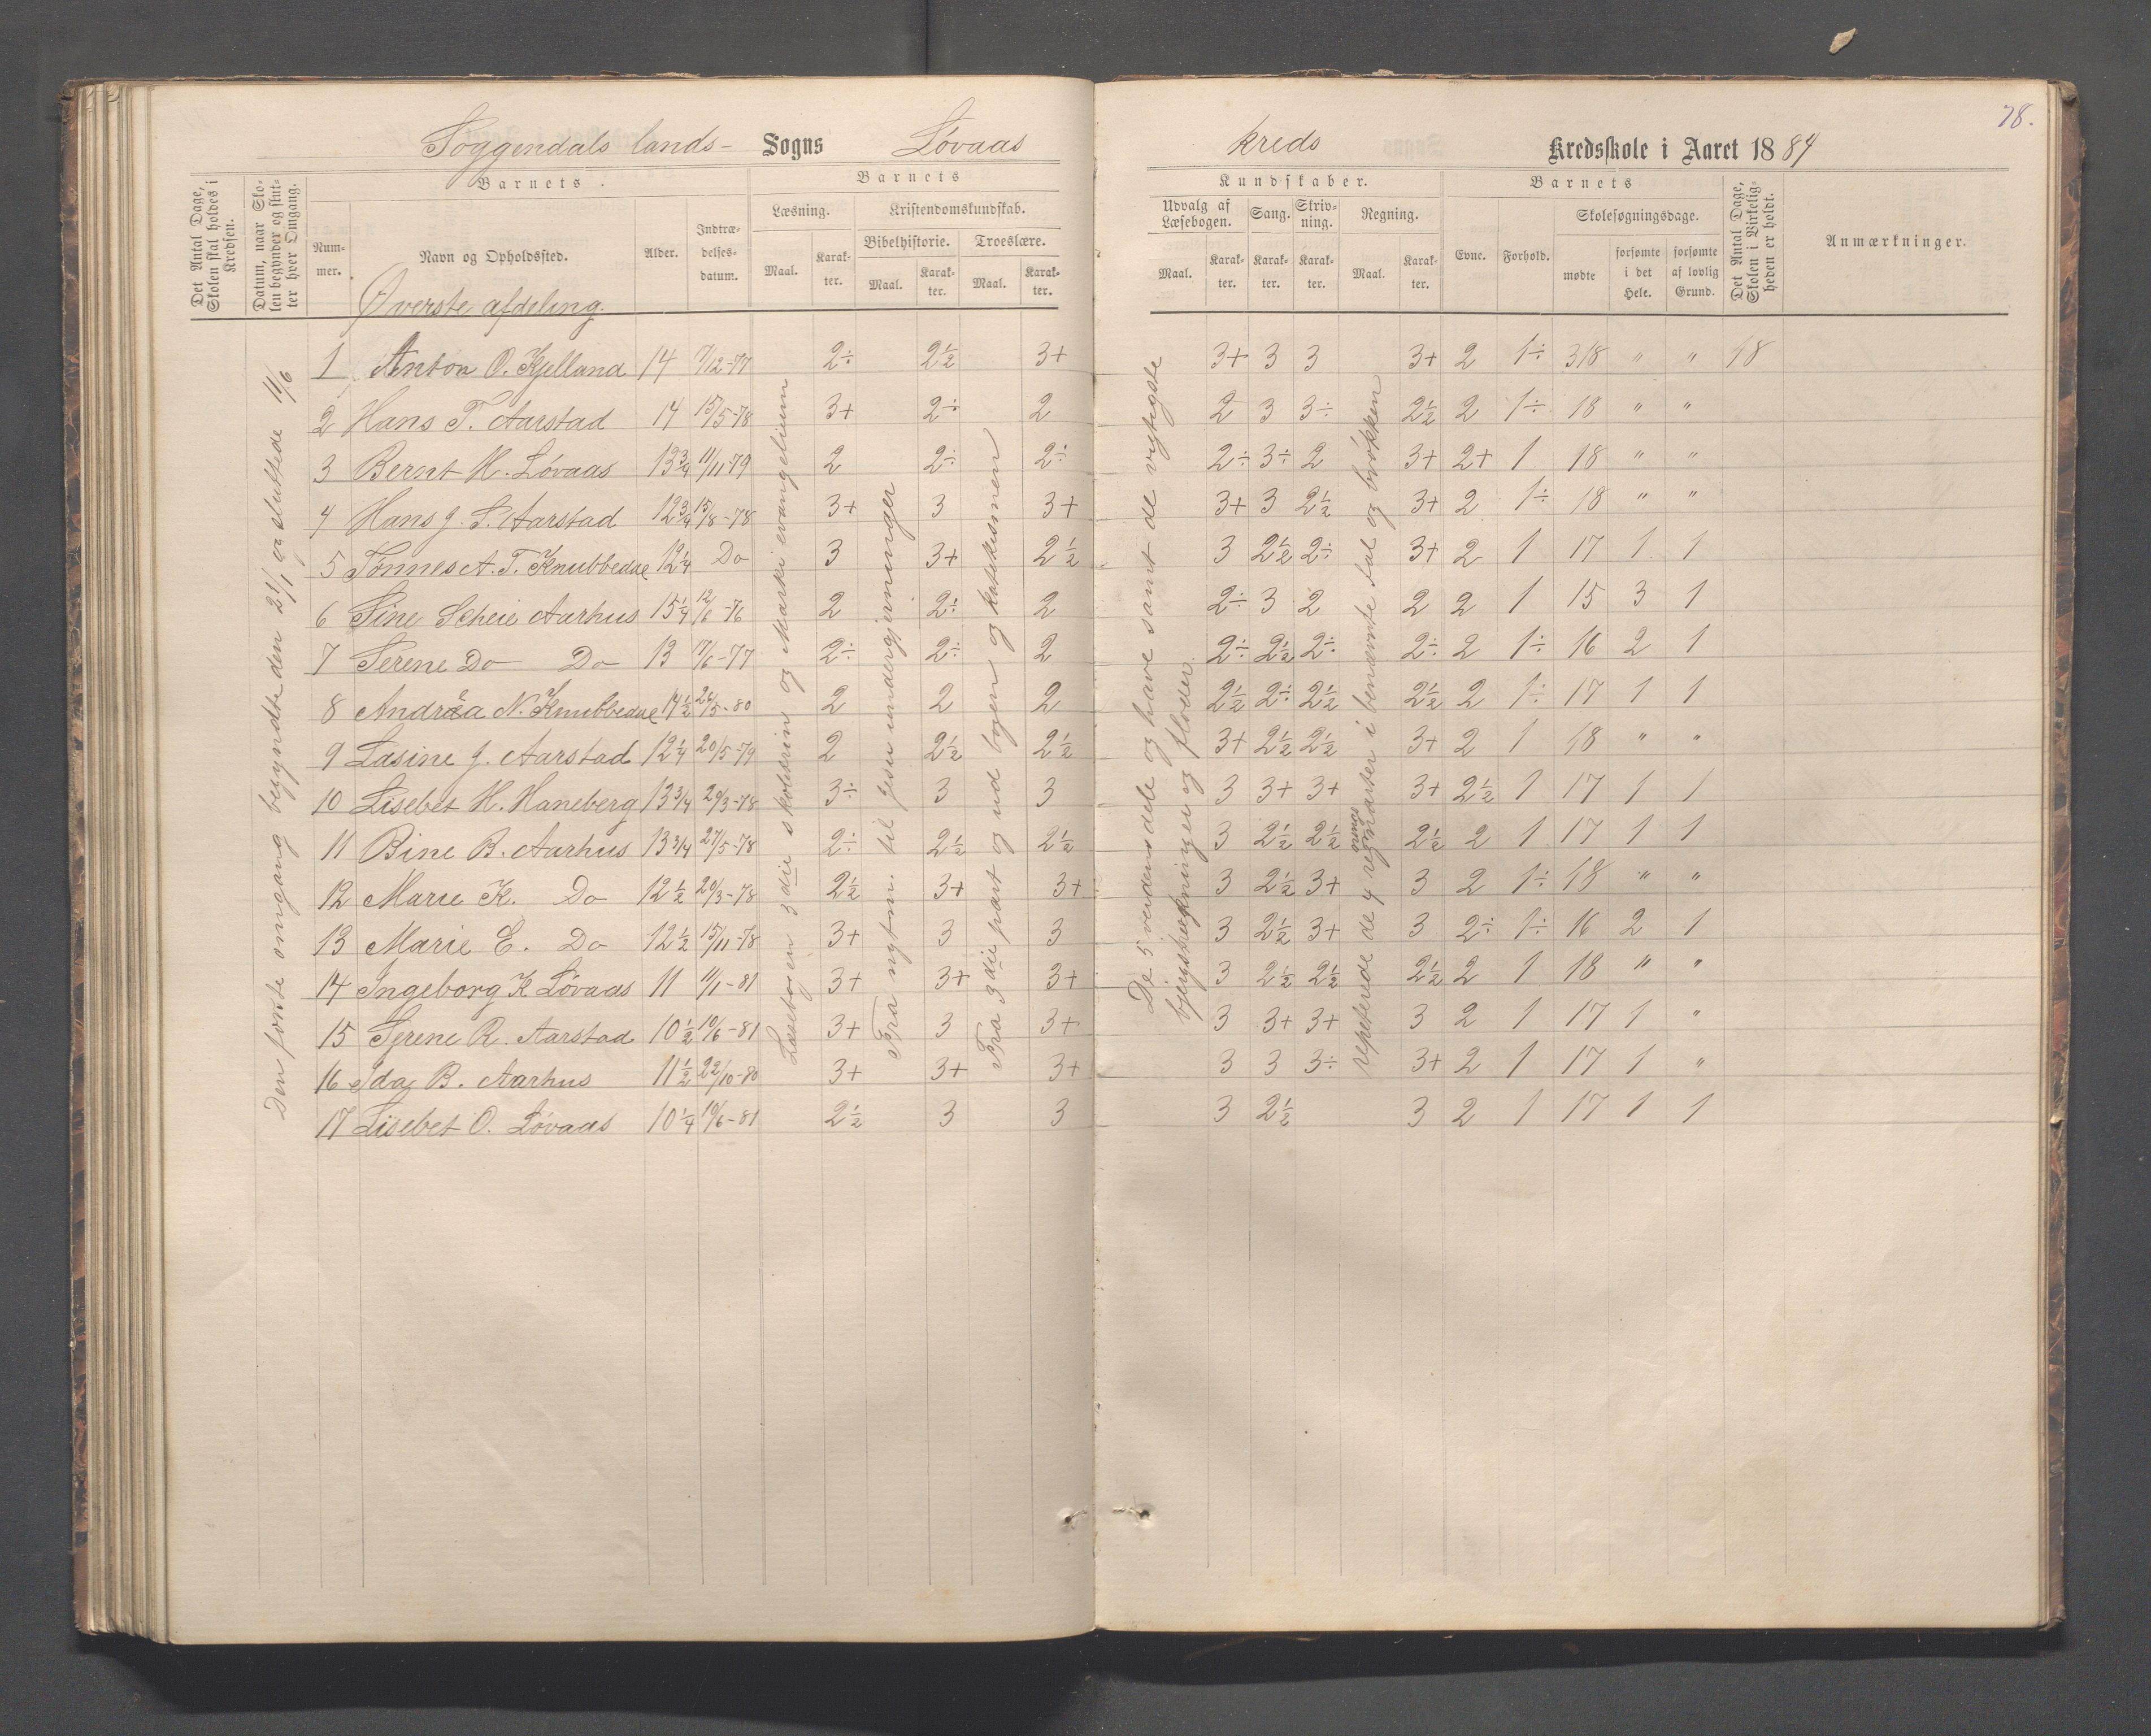 78.
Soggendals lands- Sogns Løvaas kreds Kredsskole i Aaret 1884
Det Antal Dage, Skolen skal holdes i Kredsen.
Datum, naar Skolen begynder og slutter hver Omgang.
Barnets
Nummer.
Navn og Opholdssted.
Alder.
Indtrædelsesdatum.
Barnets
Læsning.
Maal.
Karakter.
Kristendomskundskab.
Bibelhistorie.
Maal.
Karakter.
Troeslære.
Maal.
Karakter.
Kundskaber.
Udvalg af Læsebogen.
Maal.
Karakter.
Sang.
Karakter.
Skrivning.
Karakter.
Regning.
Maal.
Karakter.
Barnets
Evne.
Forhold.
Skolesøgningsdage.
mødte
forsømte i det Hele.
forsømte af lovlig Grund.
Det Antal Dage, Skolen i Virkeligheden er holdt.
Anmærkninger.
Øverste afdeling.
Den første omgang begyndte den 21/1 og sluttede 11/6
Læsebogen 3die skoletrin og Marki evangelium
Fra nytm. til Jesu undergjerninger
Fra 3die part og ud bogen og katekismen
De 5 verdensdele og have samt de vigtigste
bjergstrækninger og floder.
repeterede de 4 regningsarter i benævnte tal og brøkken
1 Anton O. Kjelland 14 7/12-77 2÷ 2½ 3+ 3+ 3 3 3+ 2 1÷ 318 " " 18
2 Hans T. Aarstad 14 15/5-78 3+ 2÷ 2 2 3 3÷ 2½ 2 1÷ 18 " "
3 Bernt H. Løvaas 13¾ 11/11-79 2 2÷ 2÷ 2÷ 3÷ 2 3+ 2+ 1 18 " "
4 Hans J. S. Aarstad 12¾ 15/8-78 3+ 3 3+ 3+ 3 2½ 3+ 2 1÷ 18 " "
5 Tønnes A. T. Knubbedal 12¼ Do 3 3+ 2½ 3 2½ 2÷ 3+ 2 1 17 1 1
6 Sine Scheie Aarhus 15¼ 12/6-76 2 2÷ 2 2÷ 3 2 2 2 1 15 3 1
7 Serene Do Do 13 17/6-77 2÷ 2÷ 2 2÷ 2½ 2÷ 2÷ 2 1÷ 16 2 1
8 Andrea N. Knubbedal 14½ 26/5-80 2 2 2 2½ 2÷ 2½ 2½ 2 1÷ 17 1 1
9 Lasine J. Aarstad 12¼ 20/5-79 2 2½ 2½ 3+ 2½ 2½ 3+ 2 1 18 " "
10 Lisebet H. Haneberg 13¾ 20/3-78 3÷ 3 3 3 3+ 3+ 3+ 2½ 1 17 1 1
11 Bine B. Aarhus 13¾ 27/5-78 2÷ 2½ 2½ 3 2½ 2½ 2½ 2 1 17 1 1
12 Marie K. Do 12½ 20/3-78 2½ 3+ 3+ 3 2½ 3+ 3 2 1÷ 18 " "
13 Marie E. Do 12½ 15/11-78 3+ 3 3 3 2½ 3+ 3 2÷ 1÷ 16 2 1
14 Ingeborg K Løvaas 11 11/1-81 3+ 3+ 3+ 3 2½ 2½ 2½ 2 1 18 " "
15 Serene R. Aarstad 10½ 10/6-81 3+ 3 3+ 3 3+ 3+ 3 2 1 17 1 "
16 Ida B. Aarhus 11½ 22/10-80 3+ 3+ 3+ 3 3 3÷ 3+ 2 1 17 1 "
17 Lisebet O. Løvaas 10¼ 10/6-81 2½ 3 3 3 2½ 3 2 1 17 1 1